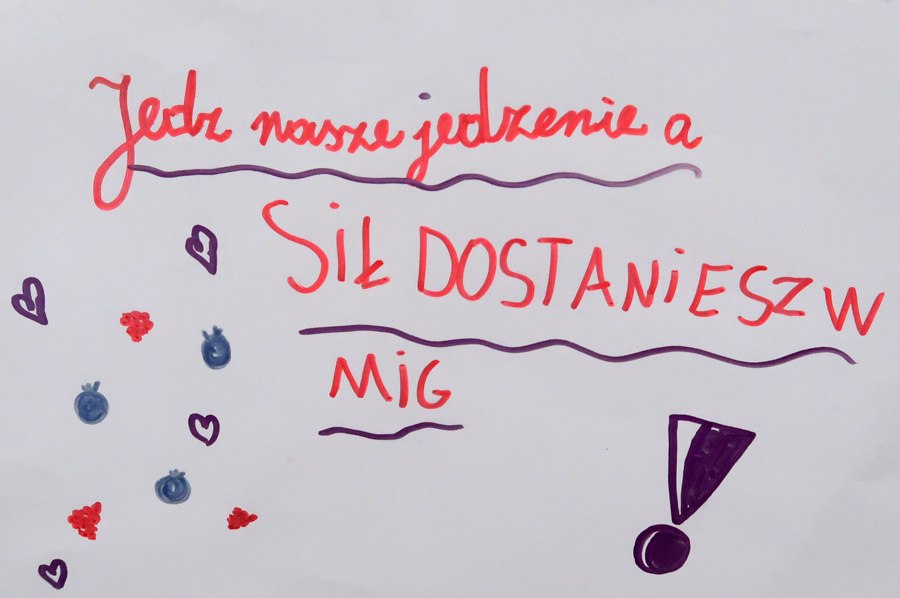 Jedz nasze jedzenie a
SIŁ DOSTANIESZ W
MIG
!